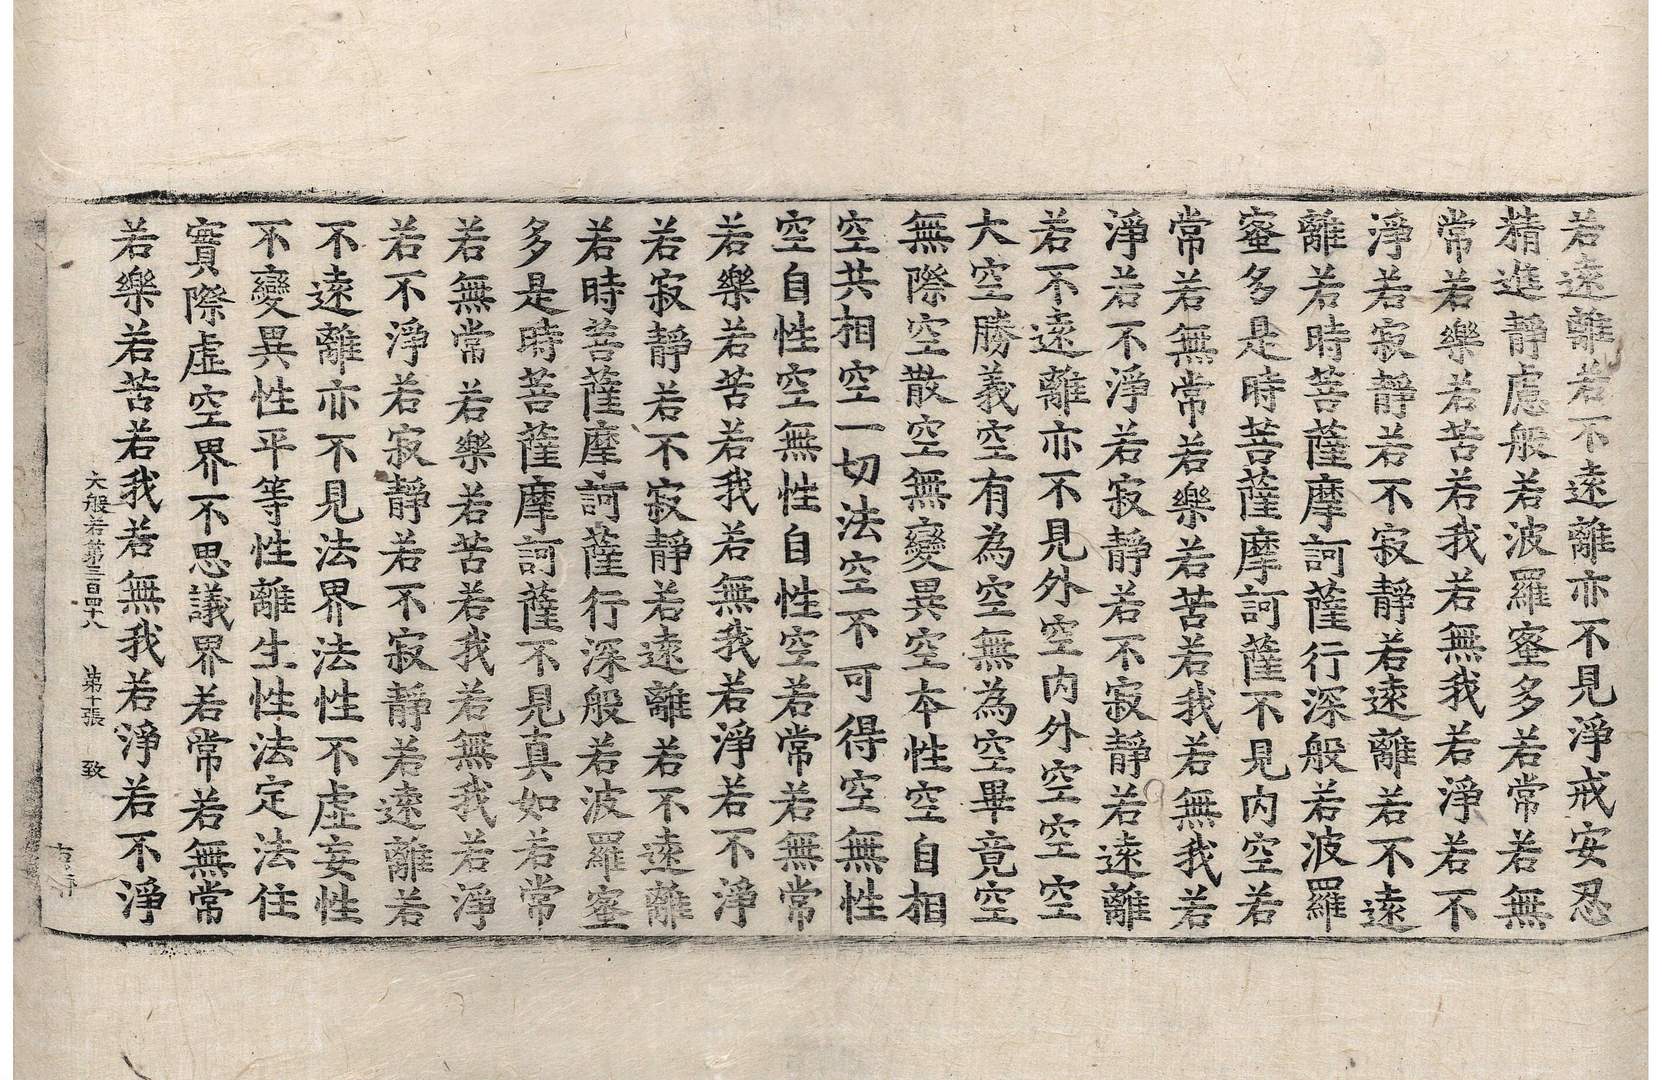 若遠離若不遠離亦不見淨戒安忍
精進靜慮般若波羅蜜多若常若無
常若樂若苦若我若無我若淨若不
淨若寂靜若不寂靜若遠離若不遠
離若時菩薩摩訶薩行深般若波羅
蜜多是時菩薩摩訶薩不見內空若
常若無常若樂若苦若我若無我若
淨若不淨若寂靜若不寂靜若遠離
若不遠離亦不見外空內外空空空
大空勝義空有為空無為空畢竟空
無際空散空無變異空本性空自相
空共相空一切法空不可得空無性
空自性空無性自性空若常若無常
若樂若苦若我若無我若淨若不淨
若寂靜若不寂靜若遠離若不遠離
若時菩薩摩訶薩行深般若波羅蜜
多是時菩薩摩訶薩不見真如若常
若無常若樂若苦若我若無我若淨
若不淨若寂靜若不寂靜若遠離若
不遠離亦不見法界法性不虛妄性
不變異性平等性離生性法定法住
實際虛空界不思議界若常若無常
若樂若苦若我若無我若淨若不淨
大般若第三百四十八 第十張 致